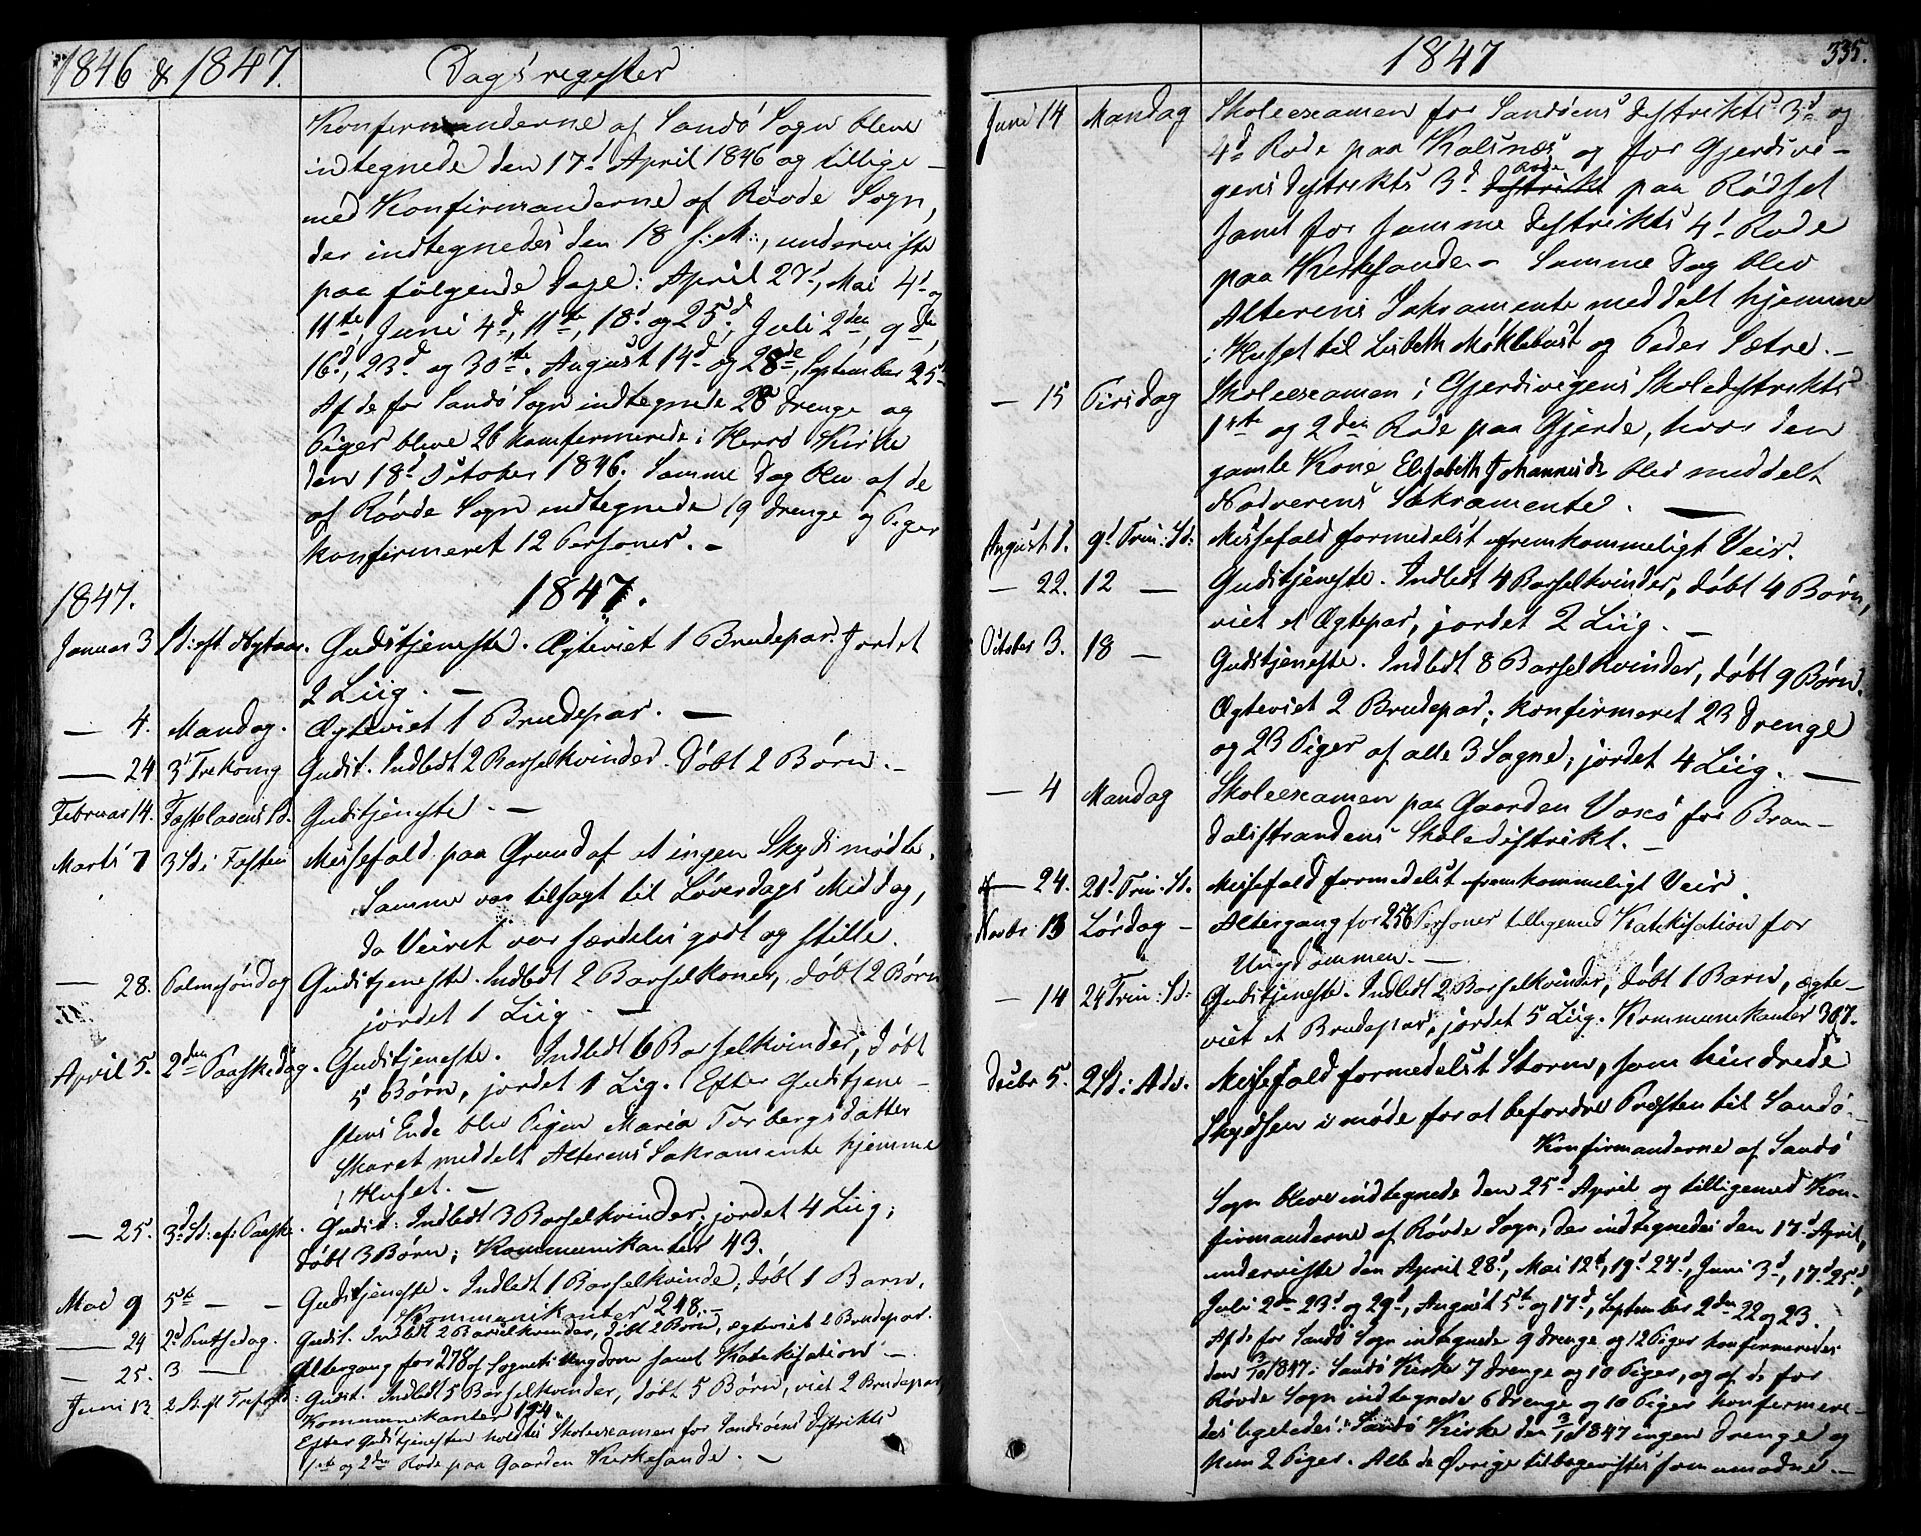 1846 & 1847. Dagsregister
Konfirmanderne af Sandö Sogn bleve
indtegnede den 17d April 1846 og tillige-
med Konfirmanderne af Rövde Sogn,
der indtegnedes den 18 s: M:, underviste
paa fölgende Dage: April 27d, Mai 4d og
11te, Juni 4d, 11te, 18d og 25d, Juli 2den, 9de,
16d, 23d og 30te. August 14d og 28de, September 25d
Af de for Sandö Sogn indtegnede 28 Drenge og
Piger bleve 26 konfermerede i Herrö Kirke
den 18d October 1846. Samme Dag blev af de
af Rövde Sogn indtegnede 19 Drenge og Piger
konfirmeret 12 Personer. -
1847. 1847.
Januar 3 Sd: eft. Nytaar. Gudstjeneste. Ægteviet 1 Brudepar. Jordet
2 Liig. -
- 4. Mandag. Ægteviet 1 Brudepar. -
- 24 3d Trekong Gudst. Indledt 2 Barselkvinder. Döbt 2 Börn. -
Februar 14. Fastelavens Sd. Gudstjeneste. -
Marts 7 3 Sd i Fasten Messefald paa Grund af at ingen Skyds mødte.
Samme var tilsagt til Löverdags Middag,
da Veiret var særdeles godt og stille.
- 28. Palmesöndag Gudstjeneste. Indledt 2 Barselkoner, döbt 2 Börn
jordet 1 Liig. -
April 5. 2den Paaskedag. Gudstjeneste. Indledt 6 Barselkvinder, döbt
5 Börn, jordet 1 Lig. Efter Gudstjene-
stens Ende blev Pigen Maria Torbergsdatter
Skaret meddelt Alterens Sakramente hjemme
i Huset. -
- 25. 3d Sd: ef: Paaske. Gudst: Indledt 3 Barselkvinder; jordet 4 Liig;
döbt 3 Börn; Kommunikanter 43.
Mai 9 5te - - Gudstjeneste. Indledt 1 Barselkvinde, döbt 1 Barn,
Kommunikanter 248. -
- 24 2d Pintsedag. Gudst. Indledt 2 Barselkvinder, döbt 2 Börn, ægteviet 2 Brudepar.
- 25. 3 - Altergang for 278 af Sognets Ungdom samt Katekisation. -
Juni 13 2 S. eft Trefold: Gudst. Indledt 5 Barselkvinder, döbt 5 Börn, viet 2 Brudepar,
Kommunikanter 194.
Efter Gudstjenesten holdtes Skoleexamen for Sandsöens Distrikts
1ste og 2den Rode paa Gaarden Kirkesande. -
1847 335.
Juni 14 Mandag Skoleexamen for Sandöens Distrikts 3d og
4d Rode paa Kalsnæs og for Gjerdsvi-
gens Distrikts 3d Distrikt Rode paa Rödset
samt for samme Distrikts 4d Rode
paa Kirkesande. - Samme Dag blev
Alterens Sakramente meddelt hjemme
i Huset til Lisbeth Möklebust og Peder Sætre. -
- 15 Tirsdag Skoleexamen i Gjerdsvigens Skoledistrikts
1ste og 2den Rode paa Gjerde, hvor den
gamle Kone Elisabeth Johannesd: blev meddelt
Nadverens Sakramente. -
August 1. 9d Trin: Sd: Messefald formedelst ufremkommeligt Veir.
- 22. 12 - Gudstjeneste. Indledt 4 Barselkvinder, döbt 4 Börn,
viet et Ægtepar, jordet 2 Liig. -
October 3. 18 - Gudstjeneste. Indledt 8 Barselkvinder, döbt 9 Börn.
Ægteviet 2 Brudepar; konfirmeret 23 Drenge
og 23 Piger af alle 3 Sogne; jordet 4 Liig. -
- 4 Mandag Skoleexamen paa Gaarden Voxö for Bran-
dalsstrandens Skoledistrikt. -
- 24. 21d Trin: Sd. Messefald formedelst ufremkommeligt Veir.
Novbr 13 Lördag - Altergang for 256 Personer tilligemed Katekisation for
Ungdommen. -
- 14 24 Trin: Sd: Gudstjeneste. Indledt 2 Barselkvinder, döbt 1 Barn, ægte-
viet et Brudepar, jordet 5 Liig. Kommunikanter 307.
Decbr 5. 2 Sd: i Adv. Messefald formedelst Storm, som hindrede
Skydsen i møde for at befordre Præsten til Sandö.
Konfirmanderne af Sandö
Sogn bleve indtegnede den 25d April og tilligemed Kon-
firmanderne af Rövde Sogn, der indtegnedes den 17d April,
underviste den April 28d, Mai 12d, 19d 27d, Juni 3d, 17d 25d,
Juli 2den 23d og 29d, August 5te og 17d, September 2den 22 og 23.
Af de for Sandö Sogn indtegnede 9 Drenge og 12 Piger konfirmeredes
den 3/10 1847 i Sandö Kirke 7 Drenge og 10 Piger, og af de for
Rövde Sogn indtegnede 6 Drenge og 10 Piger konfermere-
des ligeledes i Sandö Kirke den 3/10 1847 ingen Drenge og
kun 2 Piger. Alle de Övrige tilbagevistes som umodne. -